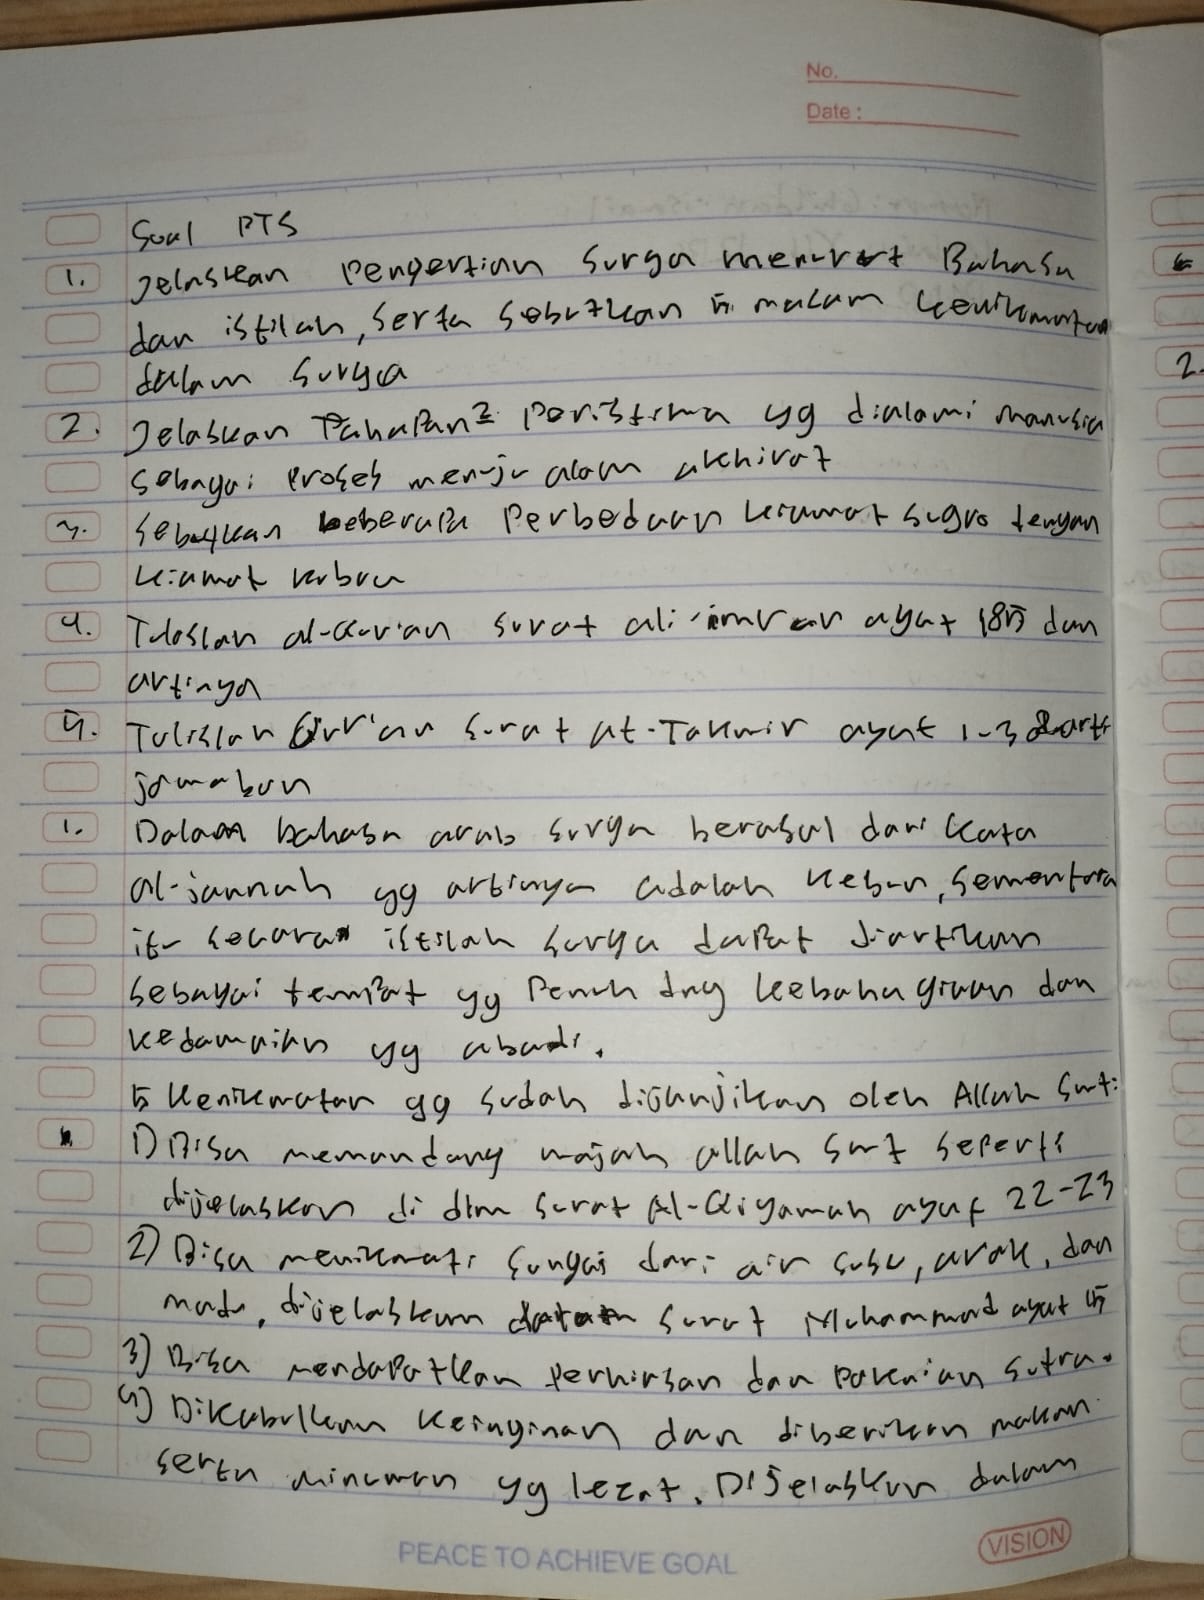 No.
Date :
Soal PTS
1. Jelaskan Pengertian Surga menurut Bahasa
dan istilah, serta Sebutkan 5 macam kenikmatan
dalam Surga
2. Jelaskan Tahapan2 Peristiwa yg dialami manusia
sebagai Proses menuju alam akhirat
3. Sebutkan beberapa Perbedaan kiamat sugro dengan
kiamat kubro
4. Tuliskan al-Qur'an surat ali-imran ayat 185 dan
artinya
5. Tuliskan Qur'an surat At-Takwir ayat 1-3 & arti
jawaban
1. Dalam bahasa arab surga berasal dari kata
al-jannah yg artinya adalah kebun, sementara
itu secara istilah surga dapat diartikan
sebagai tempat yg Penuh dng kebahagiaan dan
kedamaian yg abadi.
5 kenikmatan yg sudah dijanjikan oleh Allah Swt:
1) Bisa memandang wajah allah swt seperti
dijelaskan di dlm surat Al-Qiyamah ayat 22-23
2) Bisa menikmati sungai dari air susu, arak, dan
madu, dijelaskan dalam surat Muhammad ayat 15
3) Bisa mendapatkan perhiasan dan pakaian sutra.
4) Dikabulkan keinginan dan diberikan makan
serta minuman yg lezat. Dijelaskan dalam
PEACE TO ACHIEVE GOAL
VISION
2.